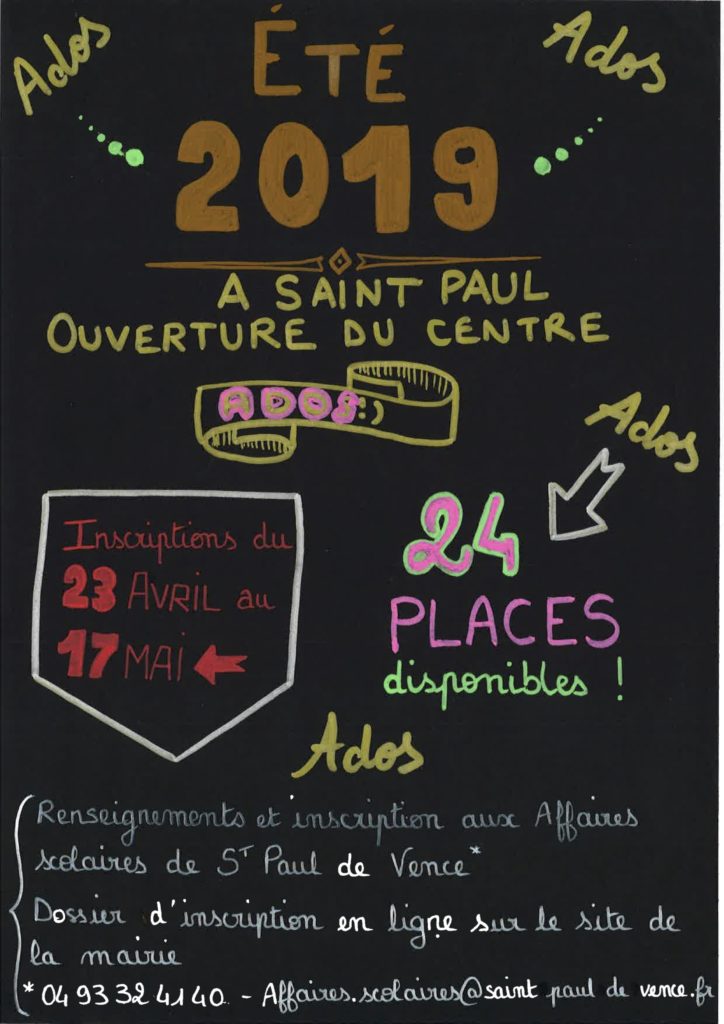 Ados
Ados
ÉTÉ
2019
A SAINT PAUL
OUVERTURE DU CENTRE
ADOS :)
Ados
Inscriptions du
23 AVRIL au
17 MAI
24
PLACES
disponibles !
Ados
Renseignements et inscription aux Affaires
scolaires de ST Paul de Vence*
Dossier d'inscription en ligne sur le site de
la mairie
* 04 93 32 41 40 - Affaires.scolaires@saint paul de vence.fr